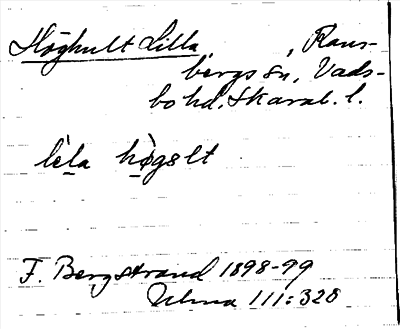 Höghult Lilla, , Rans-
bergs sn, Vads-
bo hd. Skarab. l.
lìla hø̀gɛlt
F. Bergstrand 1898-99
Ulma 111:328